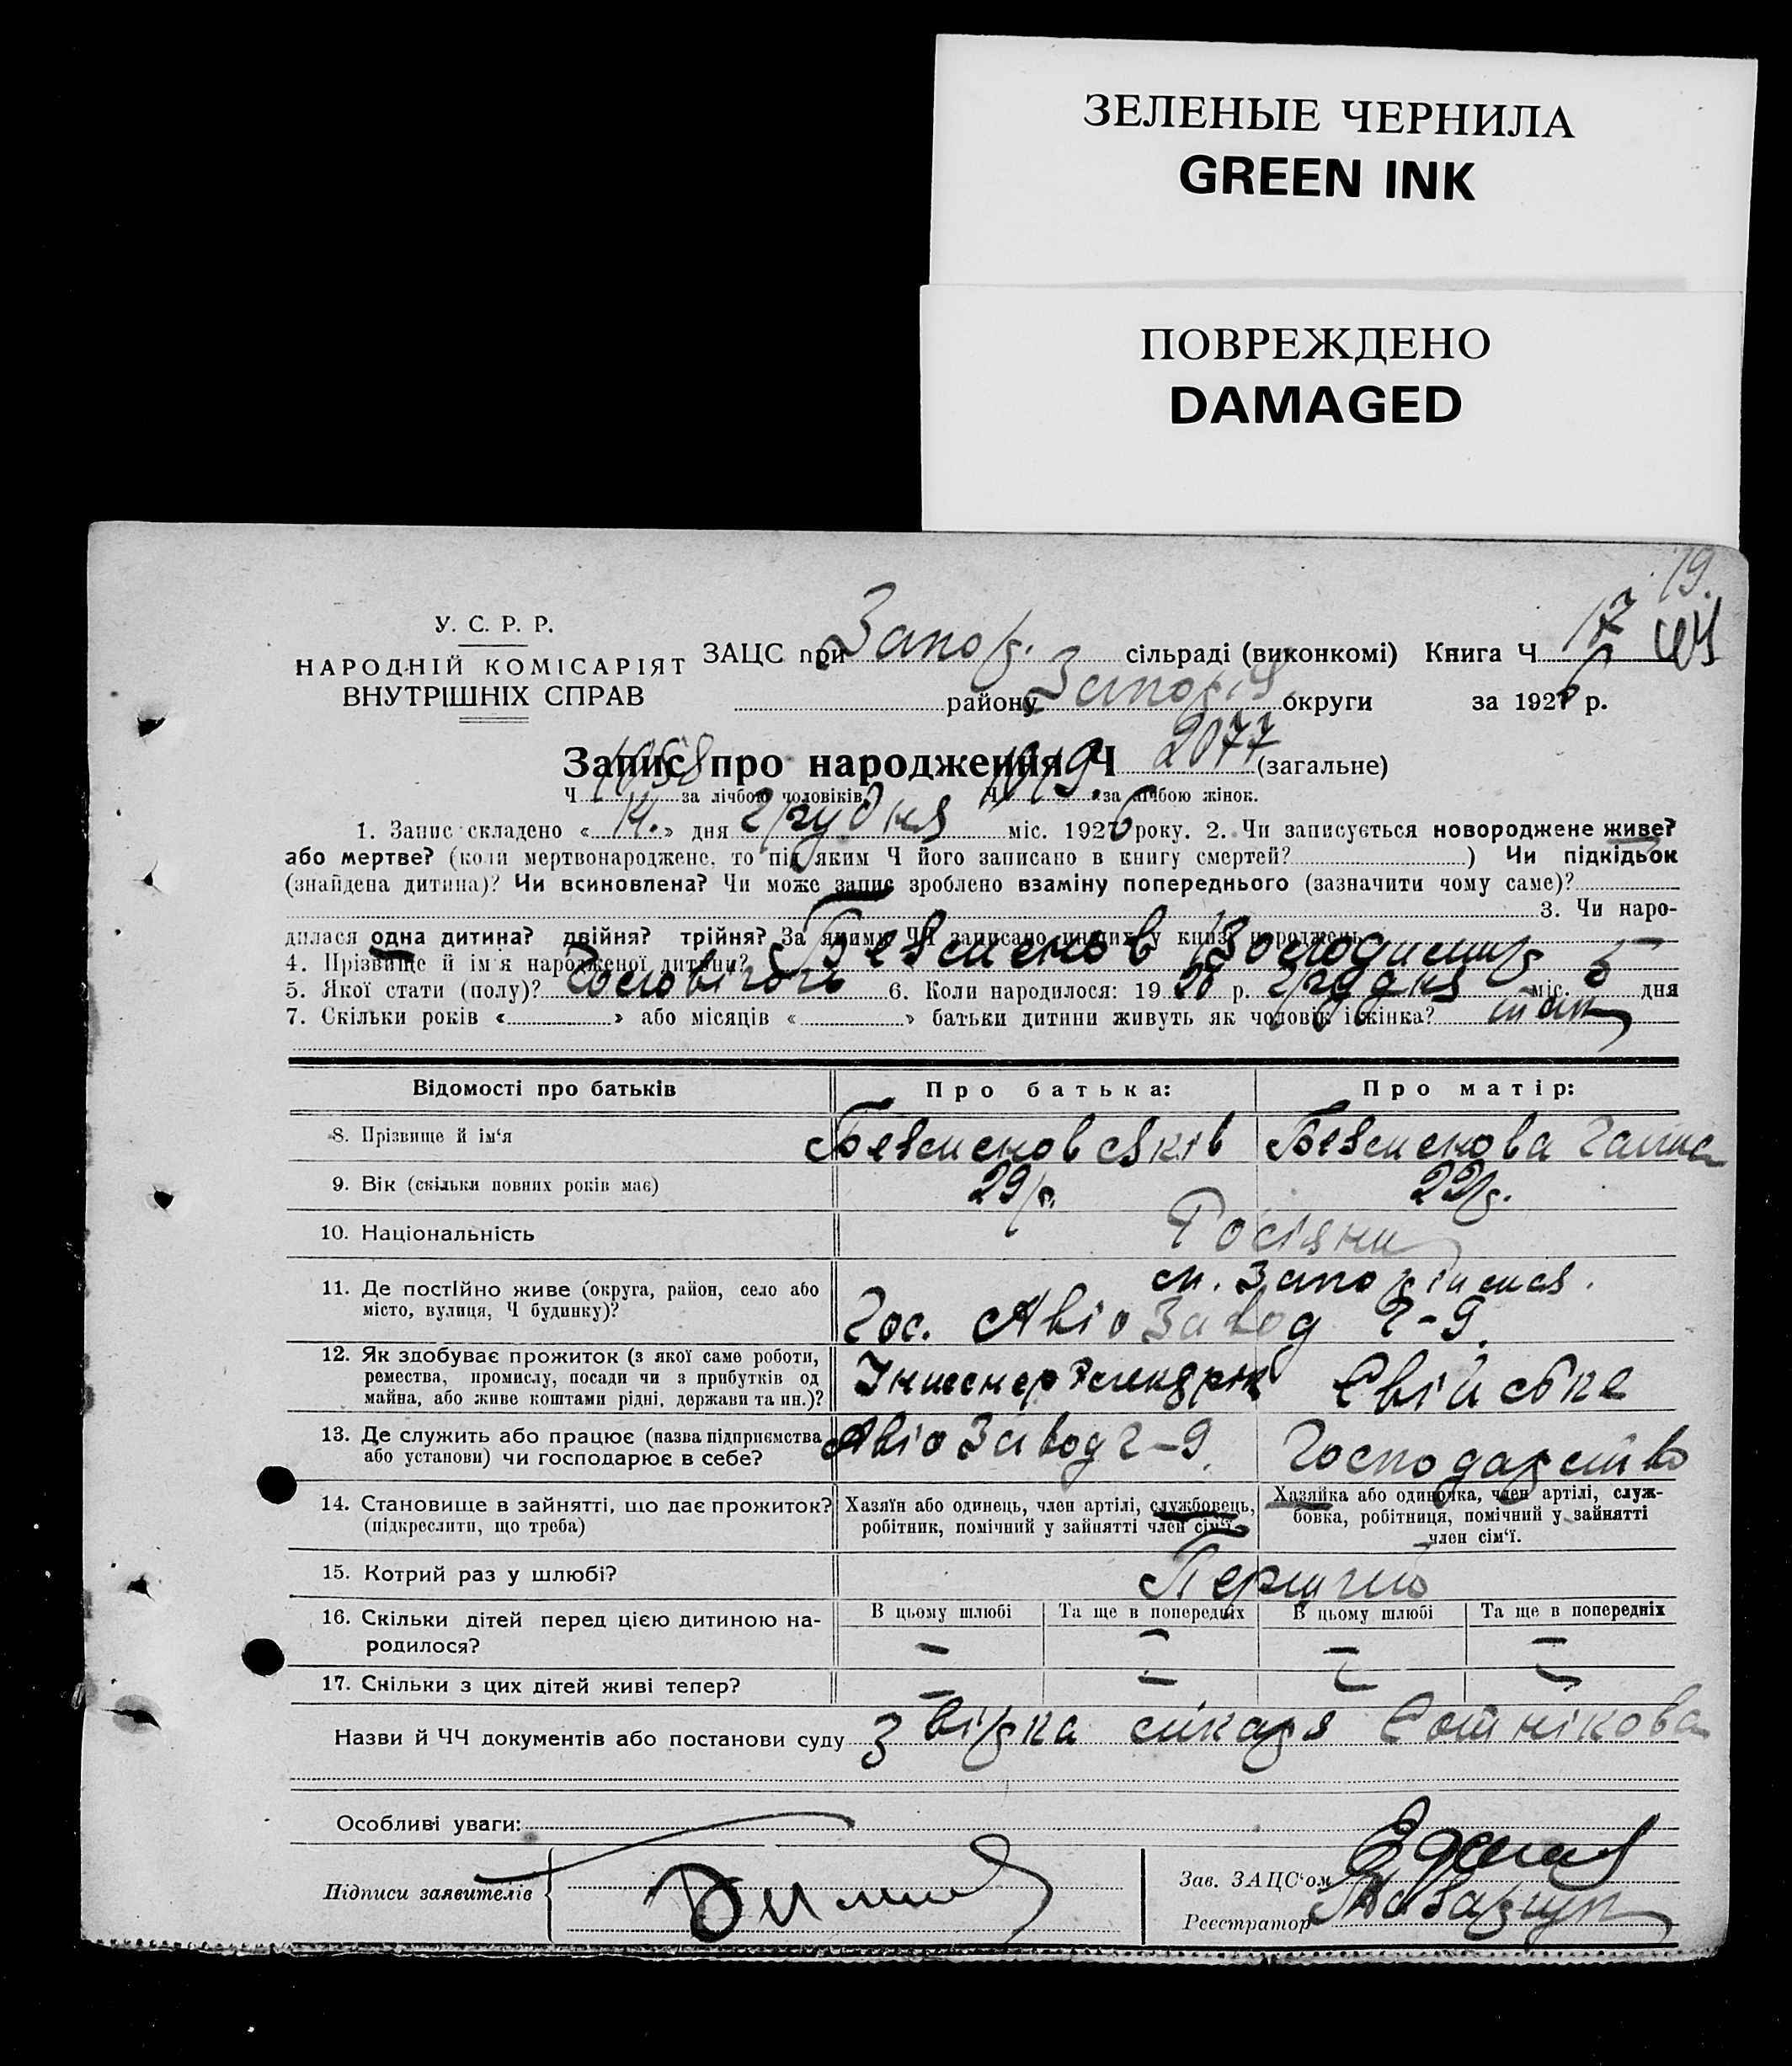 ЗЕЛЕНЫЕ ЧЕРНИЛА
GREEN INK
ПОВРЕЖДЕНО
DAMAGED
19.
У. С. Р. Р.
НАРОДНІЙ КОМІСАРІЯТ
ВНУТРІШНІХ СПРАВ
ЗАЦС при Запор. сільраді (виконкомі) Книга Ч 17
району Запоріз округи за 1926 р.
Запис про народження Ч 2077 (загальне)
Ч 1058 за лічбою чоловіків Ч 1019. за лічбою жінок.
1. Запис складено « 14. » дня Грудня міс. 1926 року. 2. Чи записується новороджене живе?
або мертве? (коли мертвонароджене, то під яким Ч його записано в книгу смертей? ) Чи підкідьок
(знайдена дитина)? Чи всиновлена? Чи може запис зроблено взаміну попереднього (зазначити чому саме)?
3. Чи наро-
дилася одна дитина? двійня? трійня? За якими ЧЧ записано инших у книзі народжень
4. Прізвище й ім'я народженої дитини? Безсменов Володимир
5. Якої стати (полу)? Чоловічоі 6. Коли народилося: 19 26 р. Грудня міс. 5 дня
7. Скільки років « » або місяців « » батьки дитини живуть як чоловік і жінка?
Відомості про батьків Про батька: Про матір:
8. Прізвище й ім'я Безсменов Яків Безсменова Галина
9. Вік (скільки повних років має) 29 р. 22 р.
10. Національність Росіяни
11. Де постійно живе (округа, район, село або місто, вулиця, Ч будинку)? м. Запоріжжя.
Гос. Авіо Завод Ч-9.
12. Як здобуває прожиток (з якої саме роботи, ремества, промислу, посади чи з прибутків од майна, або живе коштами рідні, держави та ин.)? Инженер Електрік Евійске
13. Де служить або працює (назва підприємства або установи) чи господарює в себе? Авіо Завод Ч-9. Господарство
14. Становище в зайнятті, що дає прожиток? (підкреслити, що треба) Хазяїн або одинець, член артілі, службовець, робітник, помічний у зайнятті член сім'ї. Хазяйка або одиночка, член артілі, служ-
бовка, робітниця, помічний у зайнятті член сім'ї.
15. Котрий раз у шлюбі? Перший
16. Скільки дітей перед цією дитиною на-
родилося? В цьому шлюбі – Та ще в попередніх – В цьому шлюбі – Та ще в попередніх –
17. Скільки з цих дітей живі тепер? – – – –
Назви й ЧЧ документів або постанови суду Звірка лікаря Сотнікова
Особливі уваги:
Підписи заявителів
Зав. ЗАЦС'ом
Реєстратор